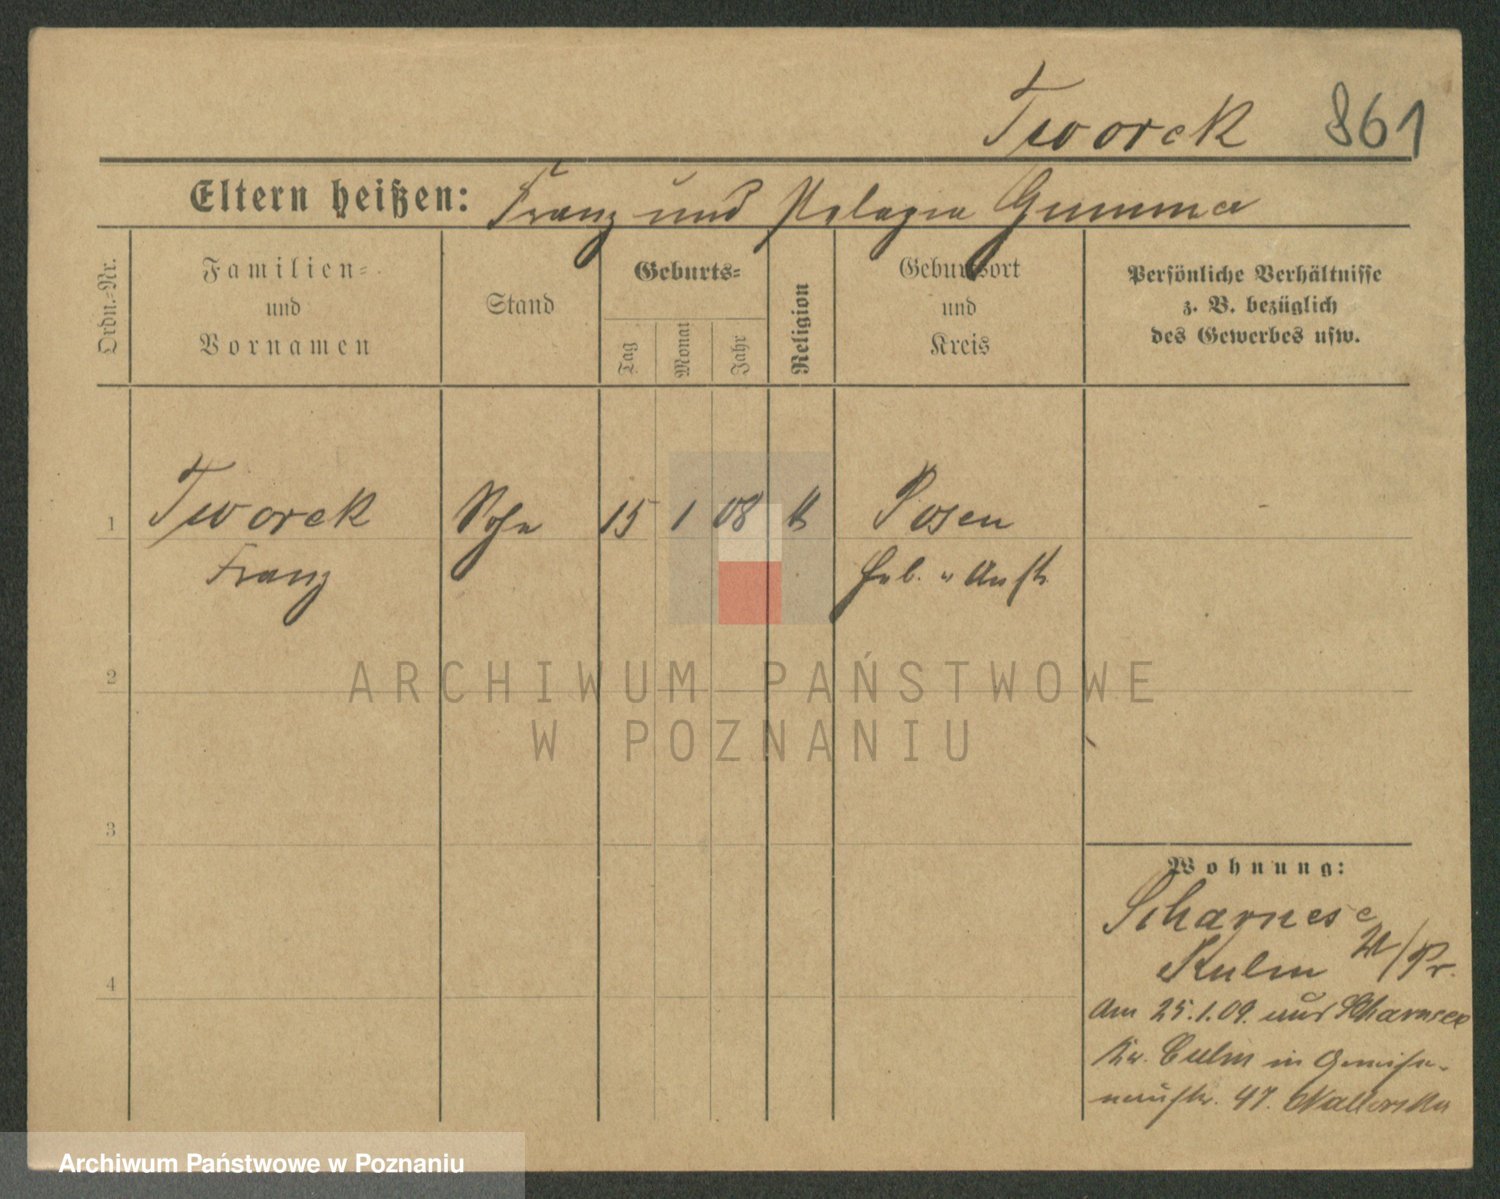 Tworek 861
Eltern heißen: Franz und Pelagia Gumma
Ordn.-Nr.
Familien-
und
Vornamen
Stand
Geburts-
Tag
Monat
Jahr
Religion
Geburtsort
und
Kreis
Persönliche Verhältnisse
z. B. bezüglich
des Gewerbes usw.
1 Tworek Sohn 15 1 08 K Posen
Franz
2
ARCHIWUM PAŃSTWOWE
W POZNANIU
3
4
Wohnung:
Scharnese
Kulm W/Pr.
Am 25.1.09. aus Scharnese
Kr. Culm in
47.
Archiwum Państwowe w Poznaniu